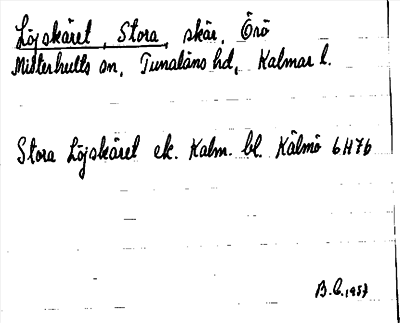 Löjskäret, Stora, skär, Örö
Misterhults sn, Tunaläns hd, Kalmar l.
Stora Löjskäret ek. Kalm. bl. Kälmö 6H7b
B.C. 1957